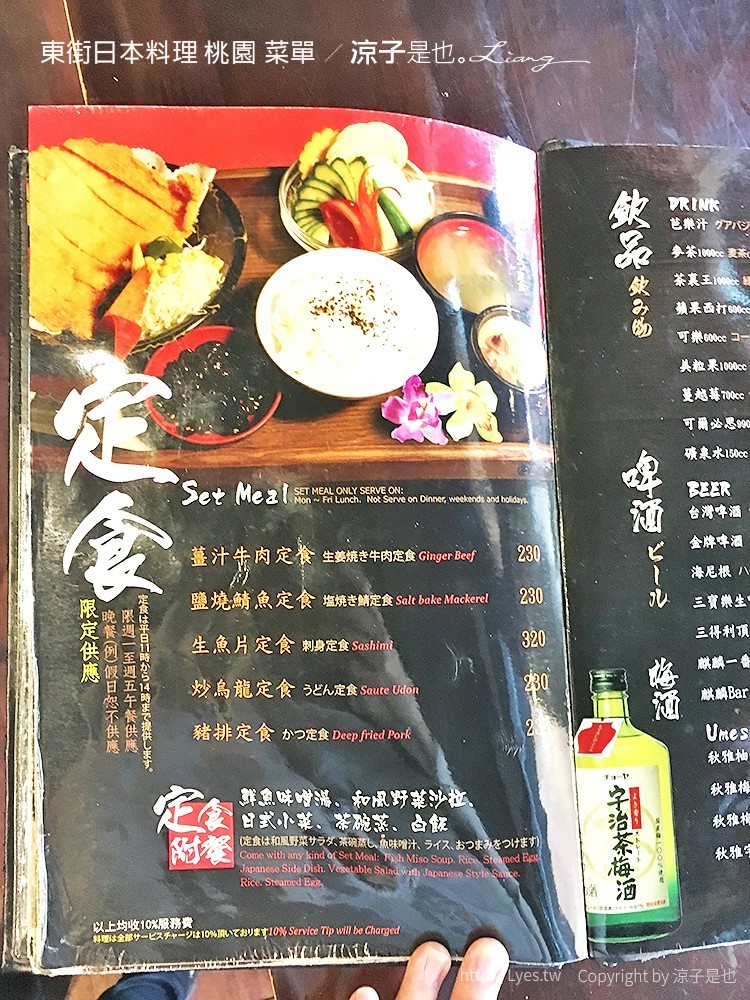 東街日本料理 桃園 菜單 / 涼子是也。Liang
定食
Set Meal
SET MEAL ONLY SERVE ON:
Mon ~ Fri Lunch. Not Serve on Dinner, weekends and holidays.
薑汁牛肉定食 生姜焼き牛肉定食 Ginger Beef 230
鹽燒鯖魚定食 塩焼き鯖定食 Salt bake Mackerel 230
生魚片定食 刺身定食 Sashimi 320
炒烏龍定食 うどん定食 Saute Udon 230
豬排定食 かつ定食 Deep fried Pork
定食は平日11時から14時まで提供します。
限週一至週五午餐供應
晚餐(例)假日恕不供應
限定供應
定食附餐
鮮魚味噌湯、和風野菜沙拉、
日式小菜、茶碗蒸、白飯
(定食は和風野菜サラダ、茶碗蒸し、魚味噌汁、ライス、おつまみをつけます)
Come with any kind of Set Meal: Fish Miso Soup. Rice. Steamed Egg.
Japanese Side Dish. Vegetable Salad with Japanese Style Sauce.
Rice. Steamed Egg.
以上均收10%服務費
料理は全部サービスチャージは10%頂いております 10% Service Tip will be Charged
飲品 飲み物
DRINK
芭樂汁 グアバジ
麥茶1000cc 麦茶
茶裏王1000cc
蘋果西打600cc
可樂600cc コー
美粒果1000cc
蔓越莓700cc
可爾必思990
礦泉水150cc
啤酒 ビール
BEER
台灣啤酒
金牌啤酒
海尼根 ハ
三寶樂生
三得利頂
麒麟一番
麒麟Bar
梅酒
Umes
秋雅柚
秋雅梅
秋雅梅
秋雅宇
チョーヤ
宇治茶梅酒
国産梅100%使用
Lyes.tw Copyright by 涼子是也